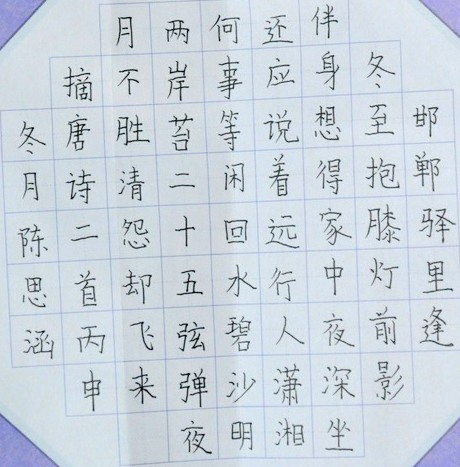 邯郸驿里逢
冬至抱膝灯前影
伴身想得家中夜深坐
还应说着远行人潇湘
何事等闲回水碧沙明
两岸苔二十五弦弹夜
月不胜清怨却飞来
摘唐诗二首丙申
冬月陈思涵